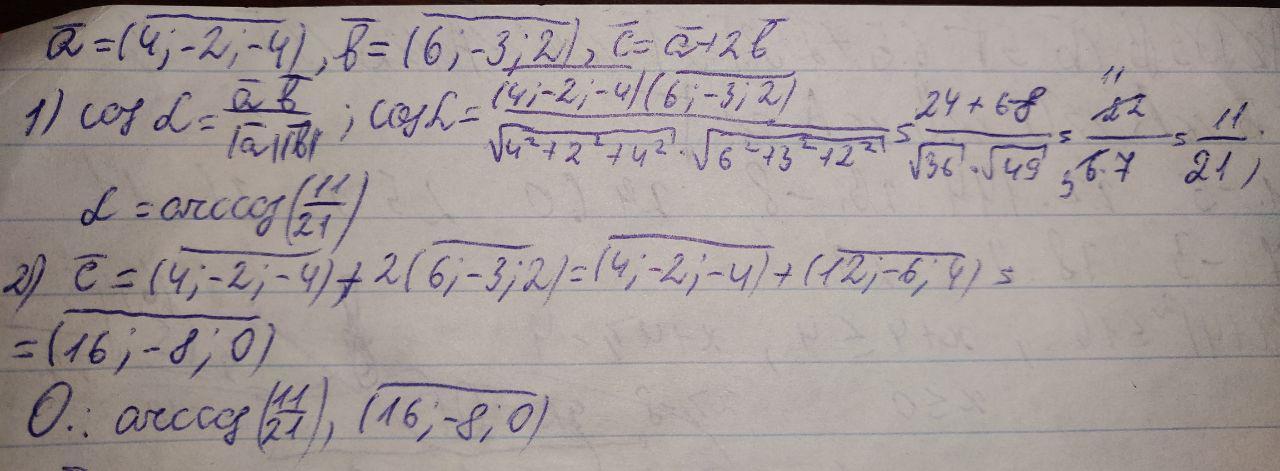 a̅ = (4; -2; -4), b̅ = (6; -3; 2), c̅ = a̅ + 2b̅
1) cos α = a̅ b̅ / |a̅||b̅| ; cos α = (4; -2; -4)(6; -3; 2) / √(4²+2²+4²) · √(6²+3²+2²) = 24 + 6 - 8 / √36 · √49 = 22 11 / 6 3 · 7 = 11 / 21,
α = arccos(11/21)
2) c̅ = (4; -2; -4) + 2(6; -3; 2) = (4; -2; -4) + (12; -6; 4) =
= (16; -8; 0)
О.: arccos(11/21), (16; -8; 0)